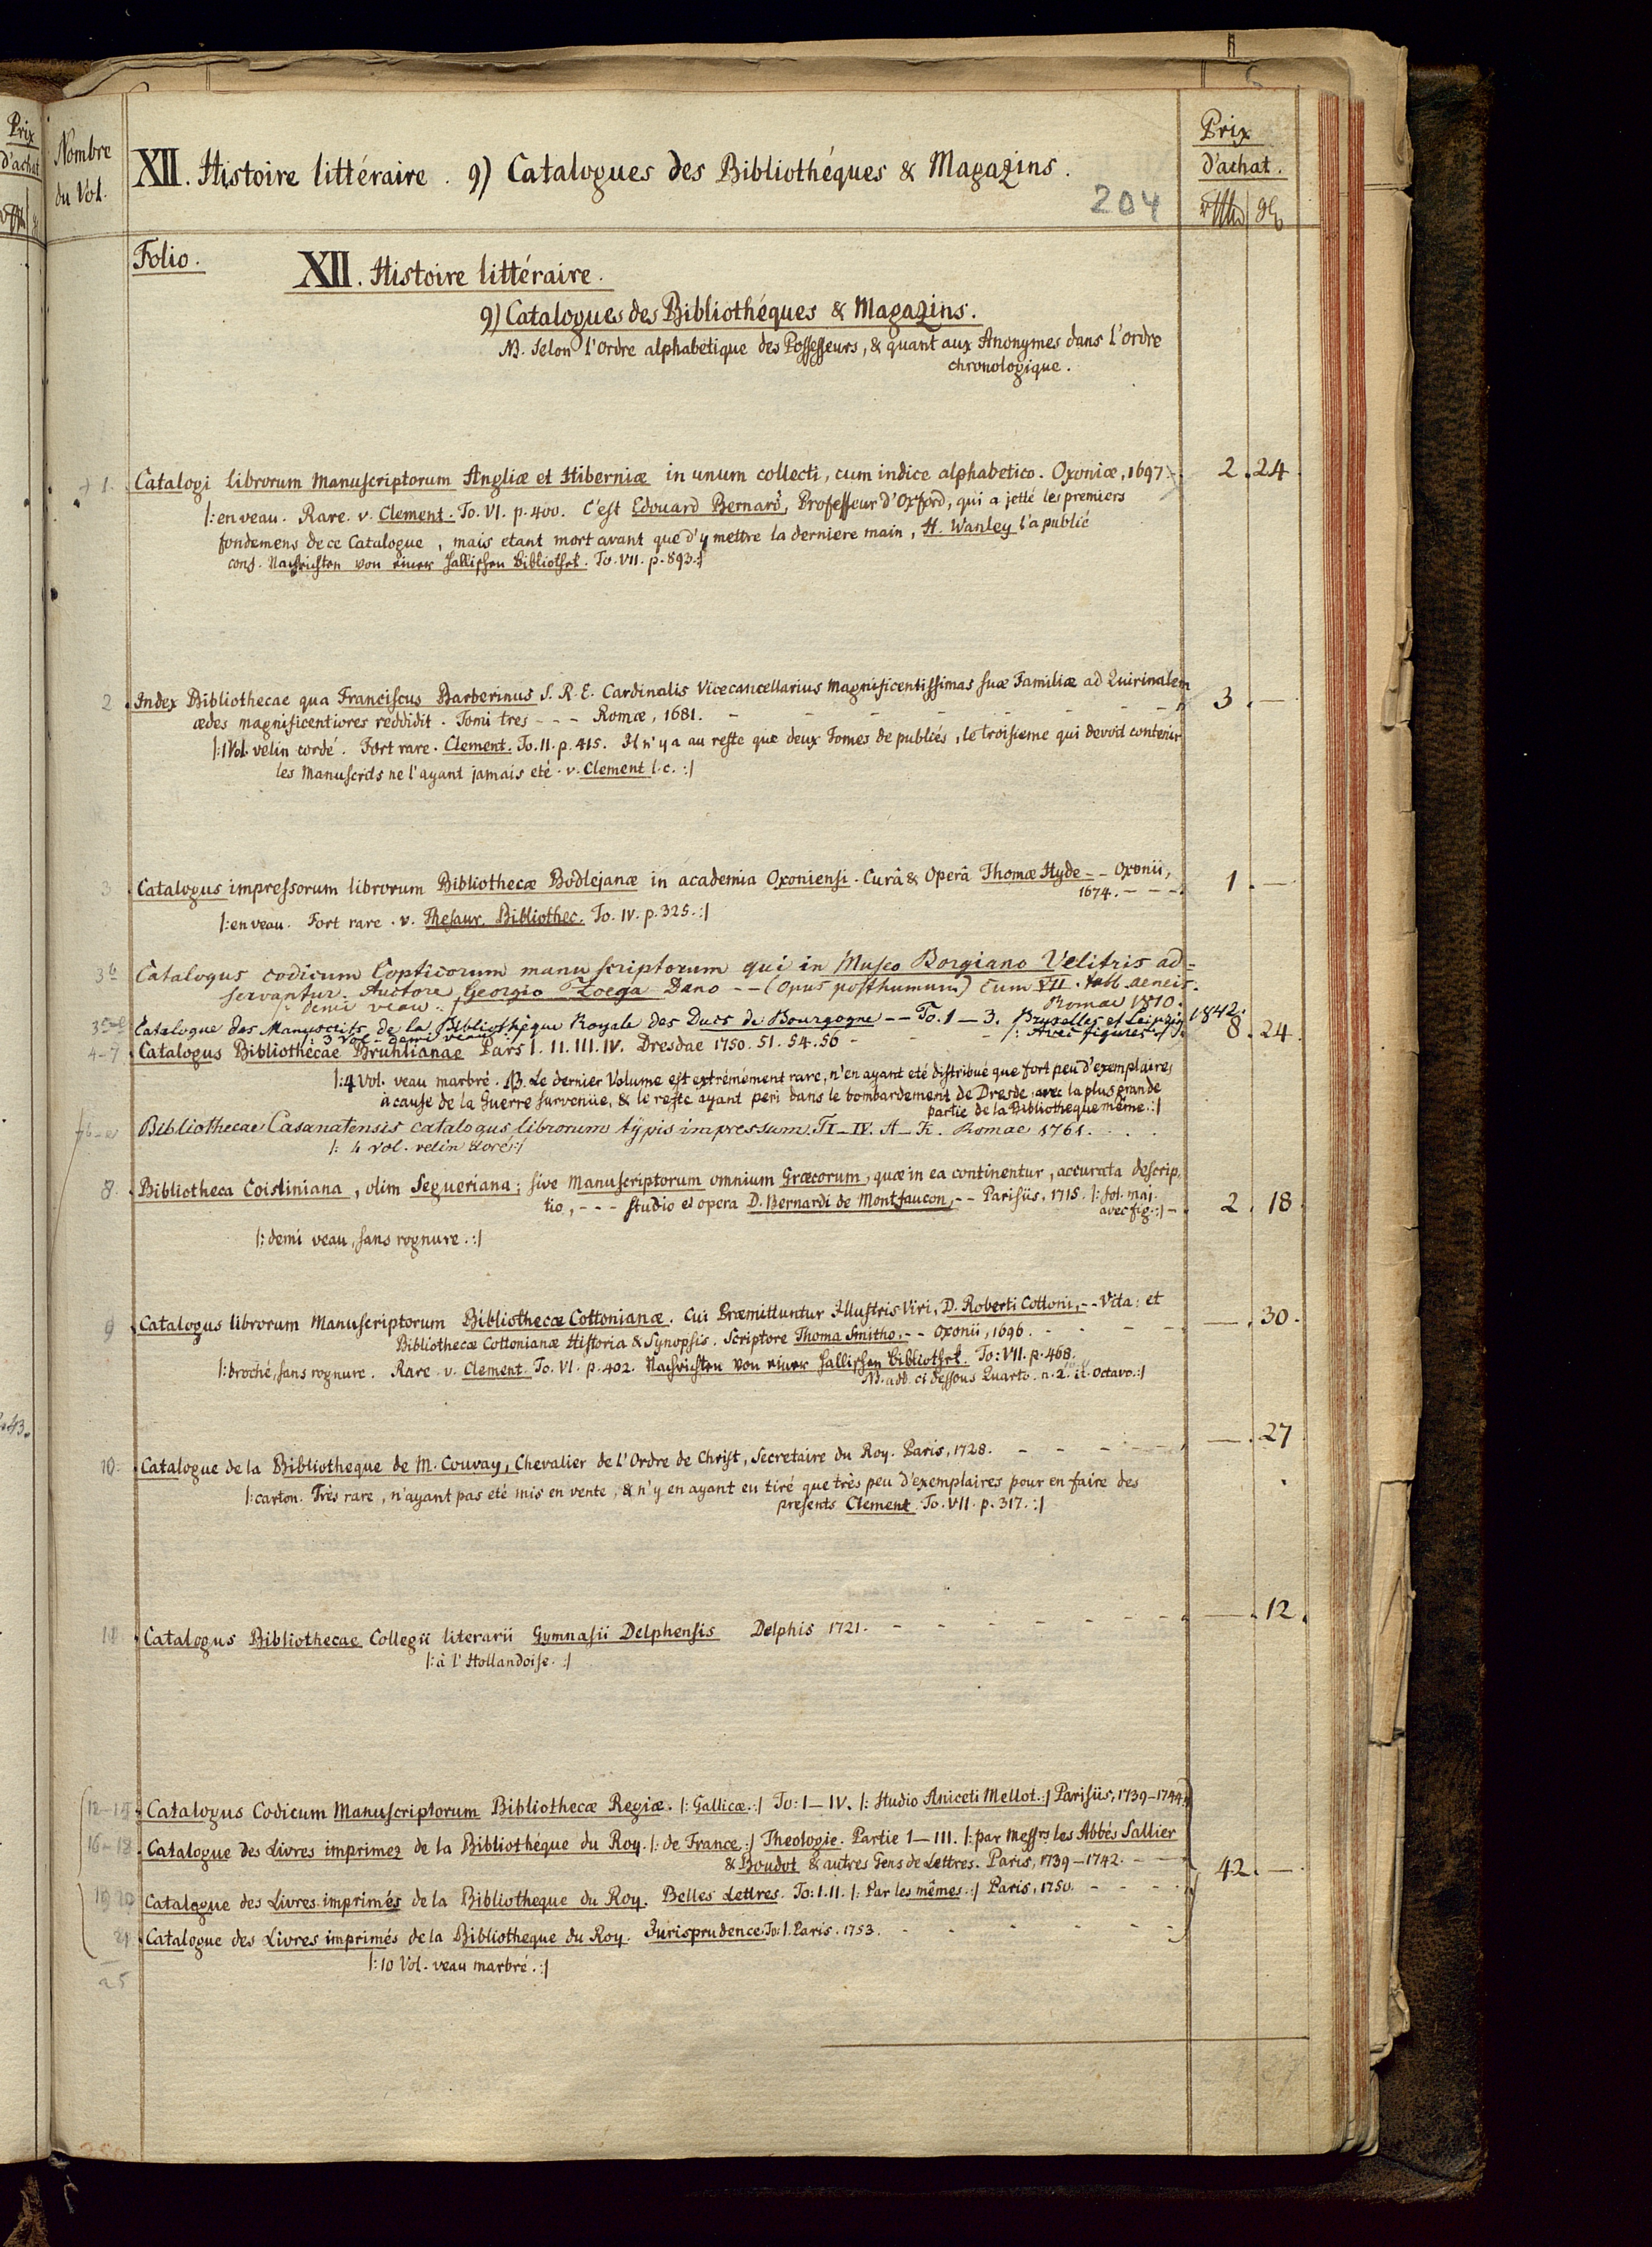 Prix
d'achat
Nombre
du Vol.
XII. Histoire littéraire. 9) Catalogues des Bibliothéques & Magazins.
204
Prix
d'achat.
Folio.
XII. Histoire littéraire.
9) Catalogues des Bibliothéques & Magazins.
NB. Selon l'ordre alphabetique des Possesseurs, & quant aux Anonymes dans l'ordre
chronologique.
1. Catalogi librorum Manuscriptorum Angliæ et Hiberniæ in unum collecti, cum indice alphabetico. Oxoniæ, 1697. 2. 24.
|: en veau. Rare. v. Clement. To. VI. p. 400. C'est Edouard Bernard, Professeur d'Oxford, qui a jetté les premiers
fondemens de ce Catalogue, mais etant mort avant que d'y mettre la derniere main, H. Wanley l'a publié
conf. Nachrichten von einer hallischen Bibliothek. To. VII. p. 893. :|
2. Index Bibliothecae qua Franciscus Barberinus S. R. E. Cardinalis Vicecancellarius Magnificentissimas suæ Familiæ ad Quirinalem
ædes magnificentiores reddidit. Tomi tres - - - Romæ, 1681. - - - - - - - - 3. —
|: 1 Vol. velin cordé. Fort rare. Clement. To. II. p. 415. Il n'y a au reste que deux Tomes de publiés, le troisieme qui devoit contenir
les Manuscrits ne l'ayant jamais eté. v. Clement l. c. :|
3. Catalogus impressorum librorum Bibliothecæ Bodlejanæ in academia Oxoniensi. Curâ & Operâ Thomæ Hyde - - Oxonii,
1674. - - - 1. —
|: en veau. Fort rare. v. Thesaur. Bibliothec. To. IV. p. 325. :|
3b Catalogus codicum Copticorum manu scriptorum qui in Museo Borgiano Velitris ad=
servantur. Auctore Georgio Zoega Dano - - (Opus posthumum) Cum VII. tabb. aeneis.
Romae 1810.
|: demi veau. :|
Catalogue des Manuscrits de la Bibliothèque Royale des Ducs de Bourgogne - - To. 1 - 3. Bruxelles et Leipzig 1842.
|: 3 Vol. - demi veau :| |: Avec figures :|
4-7 Catalogus Bibliothecae Brühlianae Pars I. II. III. IV. Dresdae 1750. 51. 54. 56 - - - 8. 24.
|: 4 Vol. veau marbré. NB. Le dernier Volume est extrémement rare, n'en ayant eté distribué que fort peu d'exemplaires
à cause de la Guerre survenüe, & le reste ayant peri dans le bombardement de Dresde, avec la plus grande
partie de la Bibliotheque même. :|
Bibliothecae Casanatensis catalogus librorum typis impressum. T I - IV. A - K. Romae 1761. . . .
|: 4 vol. velin doré :|
8. Bibliotheca Coisliniana, olim Segueriana; sive Manuscriptorum omnium Græcorum, quæ in ea continentur, accurata descrip-
tio, - - - studio et opera D. Bernardi de Montfaucon, - - Parisiis, 1715. |: fol. maj.
avec fig. :| - 2. 18
|: demi veau, sans rognure. :|
9 Catalogus librorum Manuscriptorum Bibliothecæ Cottonianæ. Cui Præmittuntur Illustris Viri, D. Roberti Cottoni, - - Vita: et
Bibliothecæ Cottonianæ Historia & Synopsis. Scriptore Thoma Smitho, - - Oxonii, 1696. - - - - —. 30.
|: broché, sans rognure. Rare. v. Clement. To. VI. p. 402. Nachrichten von einer hallischen Bibliothek. To: VII. p. 468.
NB. add. ci dessous Quarto. n. 2. it. Octavo. :|
10. Catalogue de la Bibliotheque de M. Couvay, Chevalier de l'Ordre de Christ, Secretaire du Roy. Paris, 1728. - - - - —. 27
|: carton. Très rare, n'ayant pas eté mis en vente, & n'y en ayant eu tiré que très peu d'exemplaires pour en faire des
presents Clement. To. VII. p. 317. :|
Catalogus Bibliothecae Collegii literarii Gymnasii Delphensis Delphis 1721. - - - - - - - —. 12.
|: à l'Hollandoise. :|
12-15. Catalogus Codicum Manuscriptorum Bibliothecæ Regiæ. |: Gallicæ. :| To: I - IV. |: Studio Aniceti Mellot. :| Parisiis, 1739-1744.
16-18 Catalogue des Livres imprimez de la Bibliothéque du Roy. |: de France. :| Theologie. Partie I - III. |: par Messrs les Abbés Sallier
& Boudot & autres Gens de Lettres. Paris, 1739-1742. - - - 42. —
19 20 Catalogue des Livres imprimés de la Bibliotheque du Roy. Belles Lettres. To: I. II. |: Par les mêmes. :| Paris, 1750. - - - -
21. Catalogue des Livres imprimés de la Bibliotheque du Roy. Jurisprudence. To: I. Paris. 1753. - - - - - -
|: 10 Vol. veau marbré. :|
25